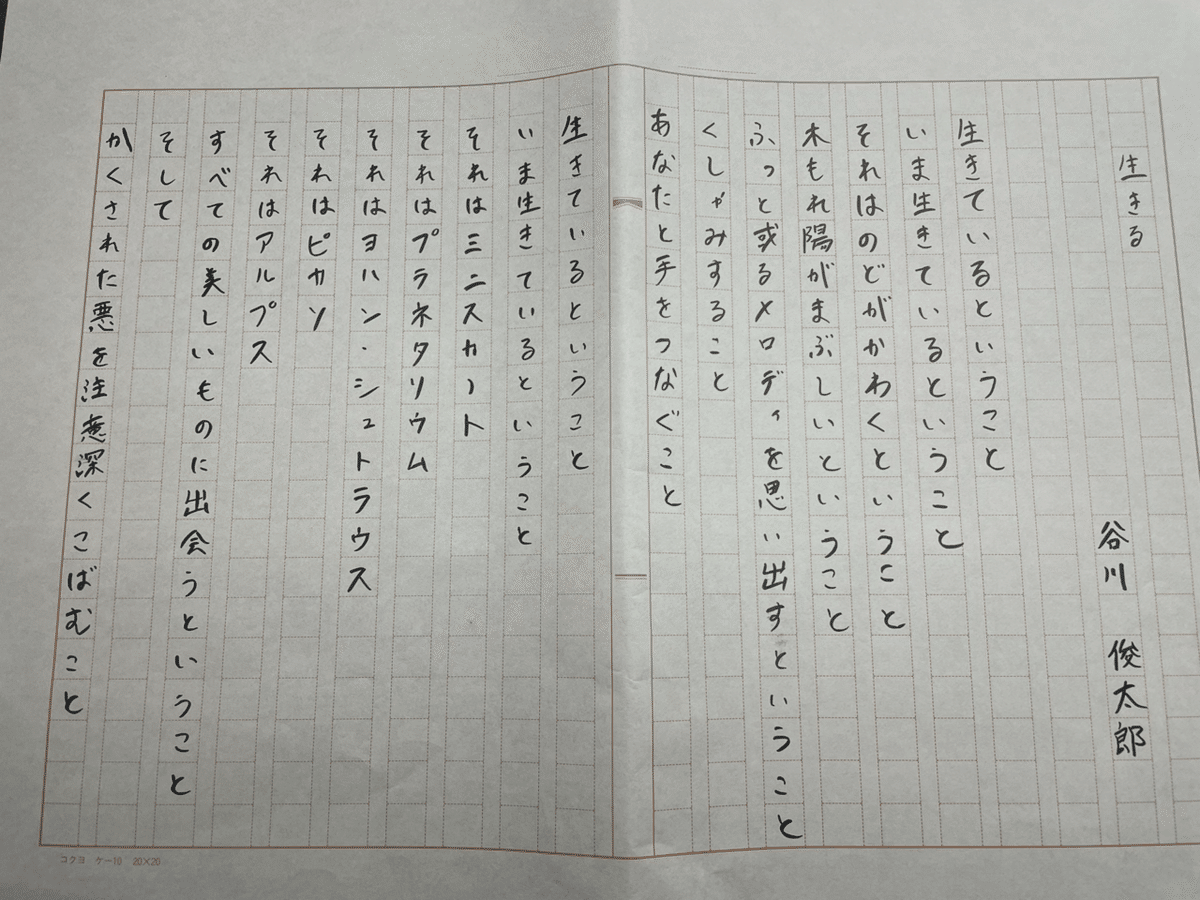 生きる
谷川 俊太郎
生きているということ
いま生きているということ
それはのどがかわくということ
木もれ陽がまぶしいということ
ふっと或るメロディを思い出すということ
くしゃみすること
あなたと手をつなぐこと
生きているということ
いま生きているということ
それはミニスカート
それはプラネタリウム
それはヨハン・シュトラウス
それはピカソ
それはアルプス
すべての美しいものに出会うということ
そして
かくされた悪を注意深くこばむこと
コクヨ ケー10 20×20